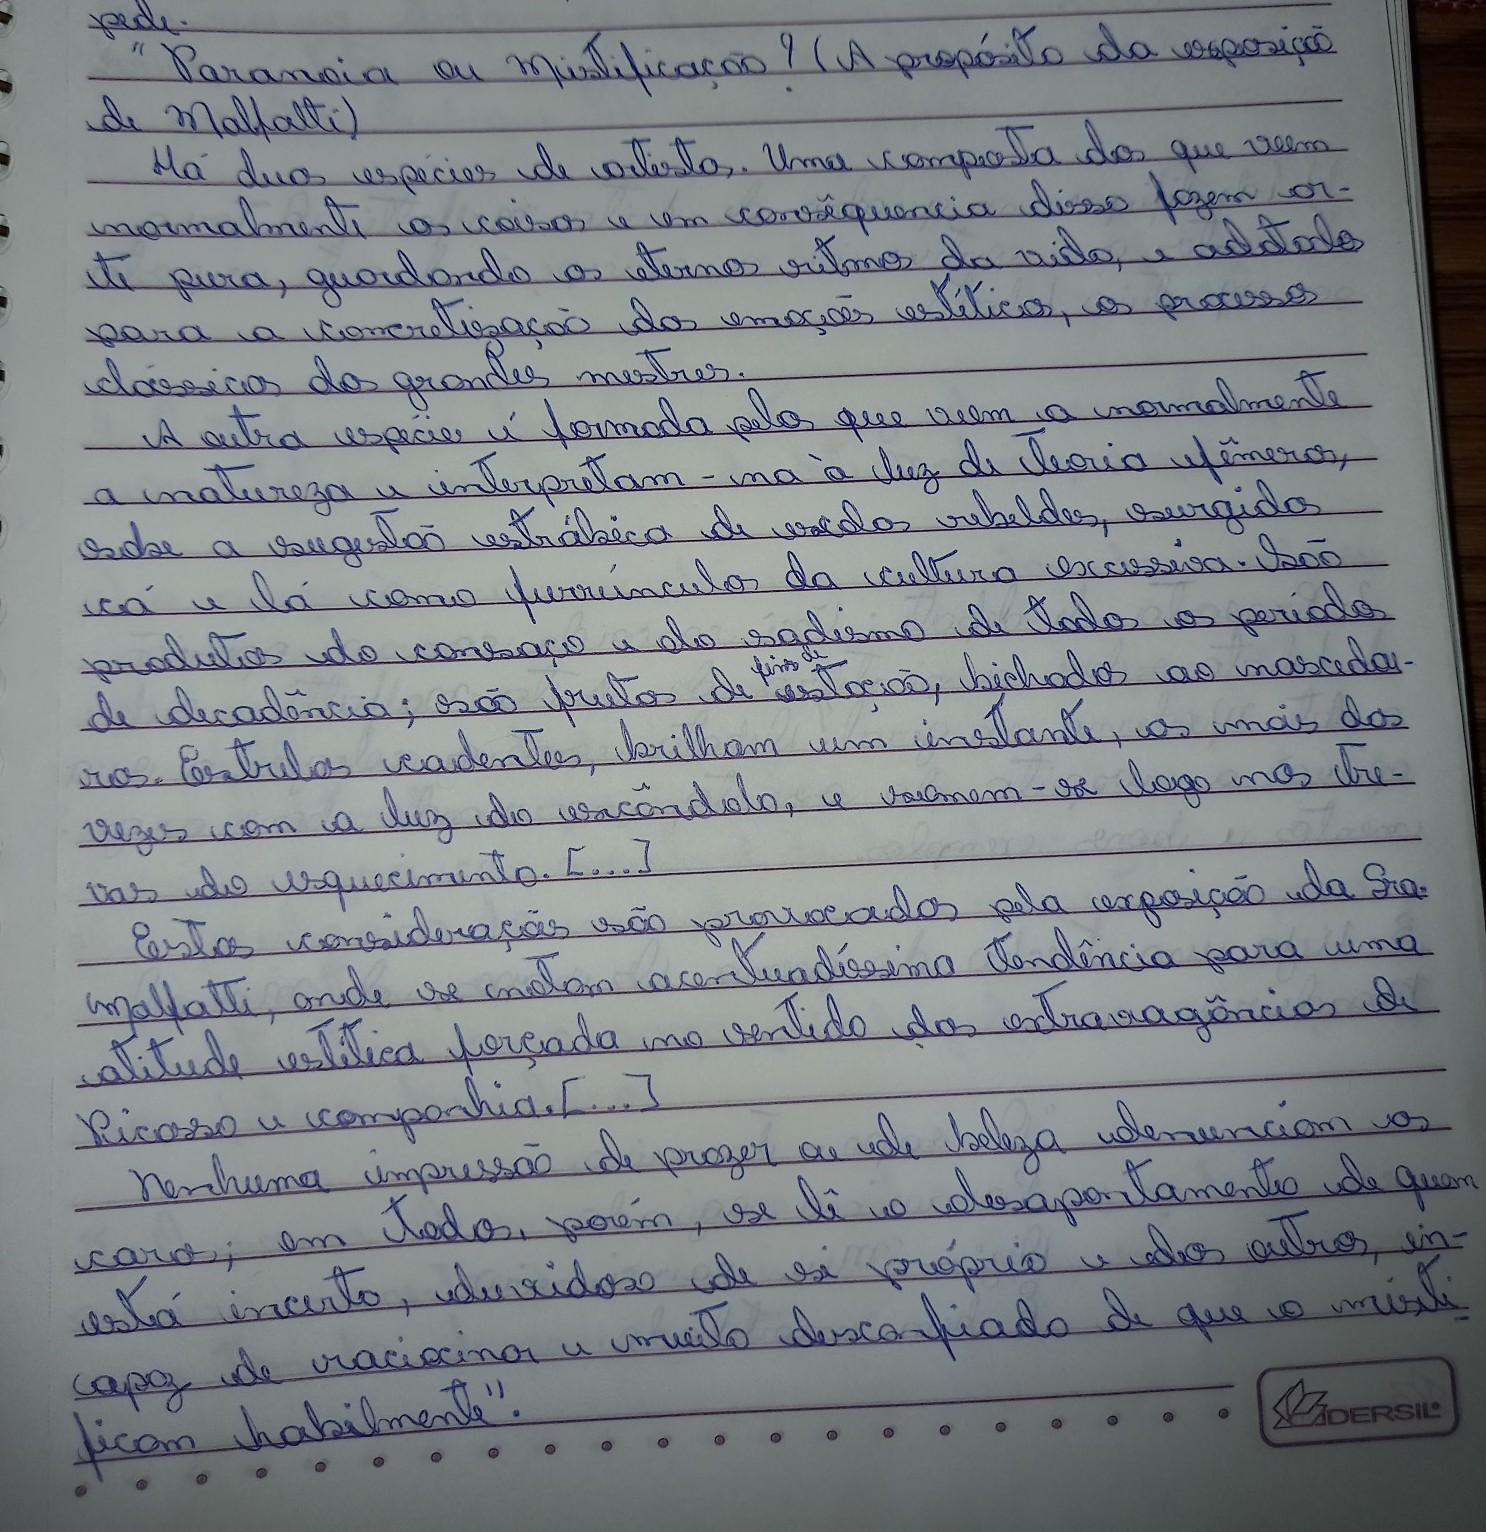 pede.
"Paranoia ou Mistificação? (A propósito da exposição
de Malfatti)
Há duas espécies de artistas. Uma composta dos que veem
normalmente as coisas e em consêquencia disso fazem ar-
te pura, guardando os eternos ritmos da vida, e adotados
para a concretização das emoções estéticas, os processos
clássicos dos grandes mestres.
A outra espécie é formada pelos que veem a normalmente
a natureza e interpretam-na à luz de teoria efêmeras,
sobe a sugestão estrábica de escolas rebeldes, surgidas
cá e lá como furrúnculos da cultura excessiva. São
produtos do cansaço e do sadismo de todos os períodos
de decadência; são frutos de fins de estação, bichados ao nascedou-
ros. Estrelas cadentes, brilham um instante, as mais das
vezes com a luz do escândalo, e somem-se logo nas tre-
vas do esquecimento. [....]
Estas considerações são provocadas pela exposição da Sra.
Malfatti, onde se notam acentuadíssima tendência para uma
atitude estética forçada no sentido das extravagâncias de
Picasso e companhia. [....]
Nenhuma impressão de prazer ou de beleza denunciam as
caras; em todas, porém, se lê o desapontamento de quem
está incerto, duvidoso de si próprio e dos outros, in-
capaz de raciocinar e muito desconfiado de que o misti-
ficam habilmente".
DERSIL